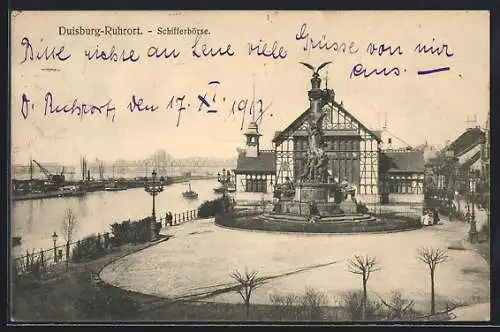 Duisburg-Ruhrort. - Schifferbörse.
Bitte richte an Lene viele Grüsse von mir
aus.
D. Ruhrort, den 17. XI. 1912